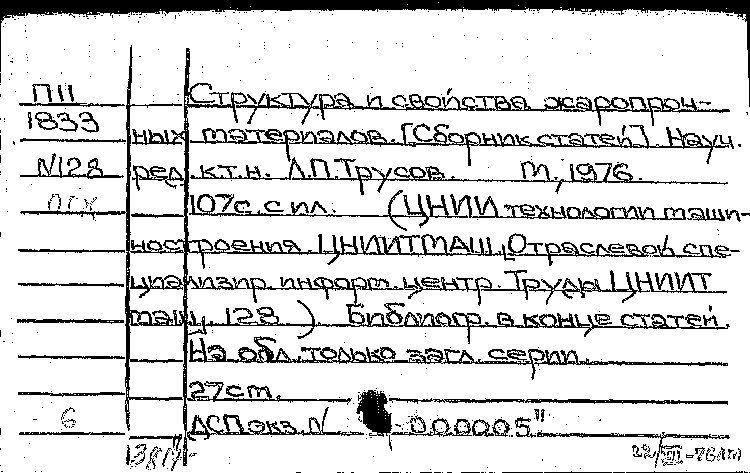 П11
1833
N128
Структура и свойства жаропроч-
ных материалов. [Сборник статей]. Науч.
ред. к.т.н. Л.П.Трусов. М., 1976.
107с. с ил. (ЦНИИ технологии маши-
ностроения. ЦНИИТМАШ. Отраслевой спе-
циализир. информ. центр. Труды ЦНИИТ
маш, 128) Библиогр. в конце статей.
На обл. только загл. серии.
27ст.
6 ДСП экз. N 000005"